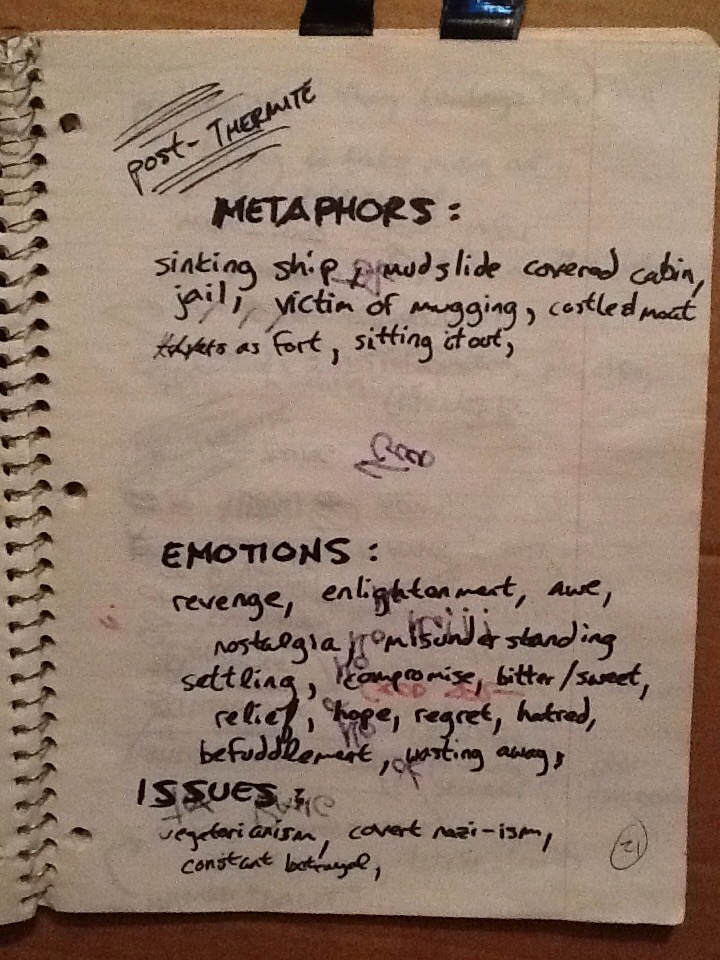 post-THERMITE
METAPHORS:
sinking ship, mudslide covered cabin,
jail, victim of mugging, castle & moat
as fort, sitting it out,
EMOTIONS:
revenge, enlightenment, awe,
nostalgia, misunderstanding
settling, compromise, bitter/sweet,
relief, hope, regret, hatred,
befuddlement, wasting away,
ISSUES:
vegetarianism, covert nazi-ism,
constant betrayal,
21